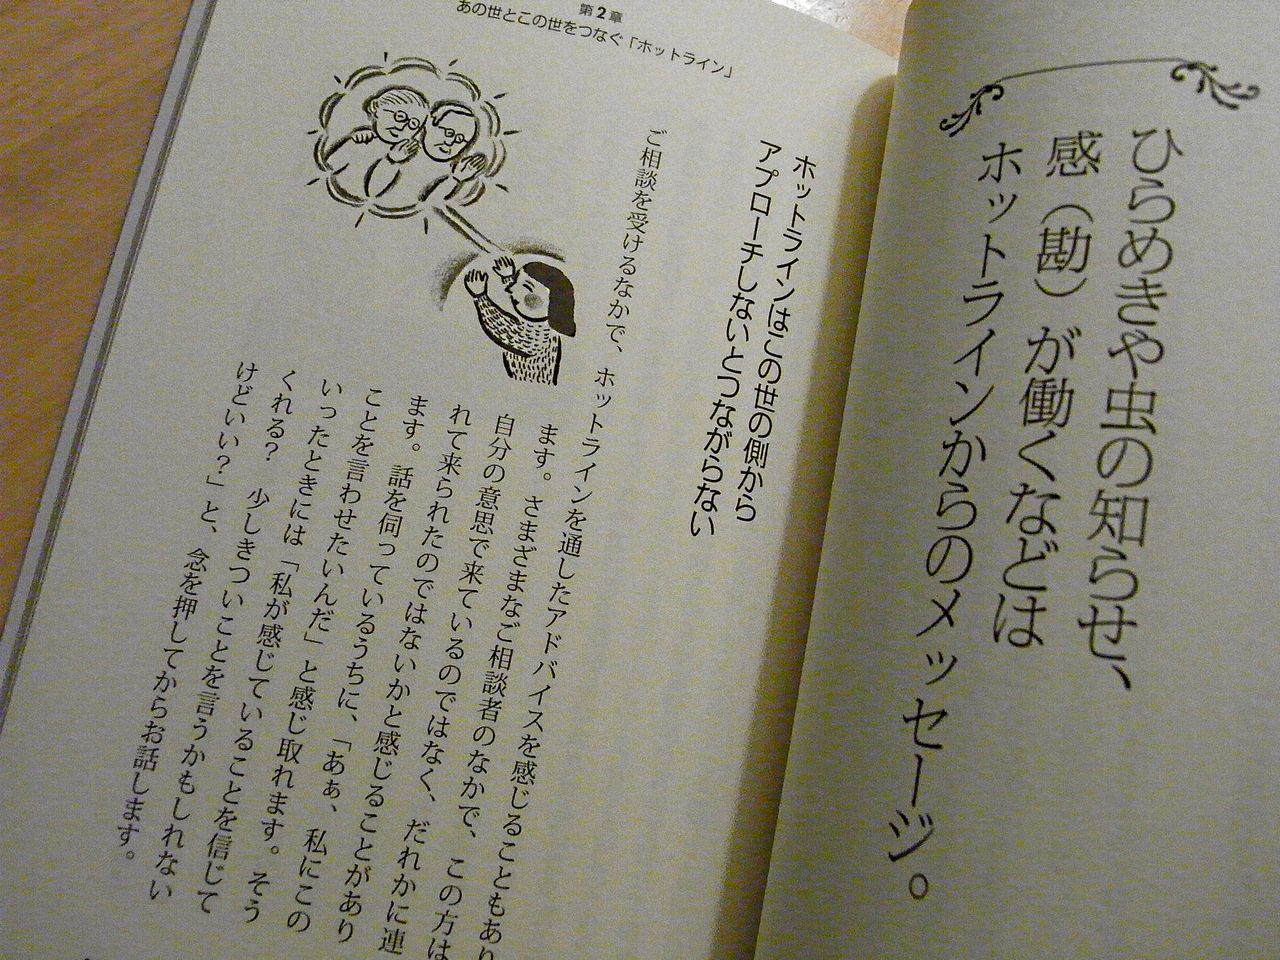 ひらめきや虫の知らせ、
感（勘）が働くなどは
ホットラインからのメッセージ。
第2章
あの世とこの世をつなぐ「ホットライン」
ホットラインはこの世の側から
アプローチしないとつながらない
ご相談を受けるなかで、ホットラインを通したアドバイスを感じることもあり
ます。さまざまなご相談者のなかで、この方は
自分の意思で来ているのではなく、だれかに連
れて来られたのではないかと感じることがあり
ます。話を伺っているうちに、「あぁ、私にこの
ことを言わせたいんだ」と感じ取れます。そう
いったときには「私が感じていることを信じて
くれる？　少しきついことを言うかもしれない
けどいい？」と、念を押してからお話します。